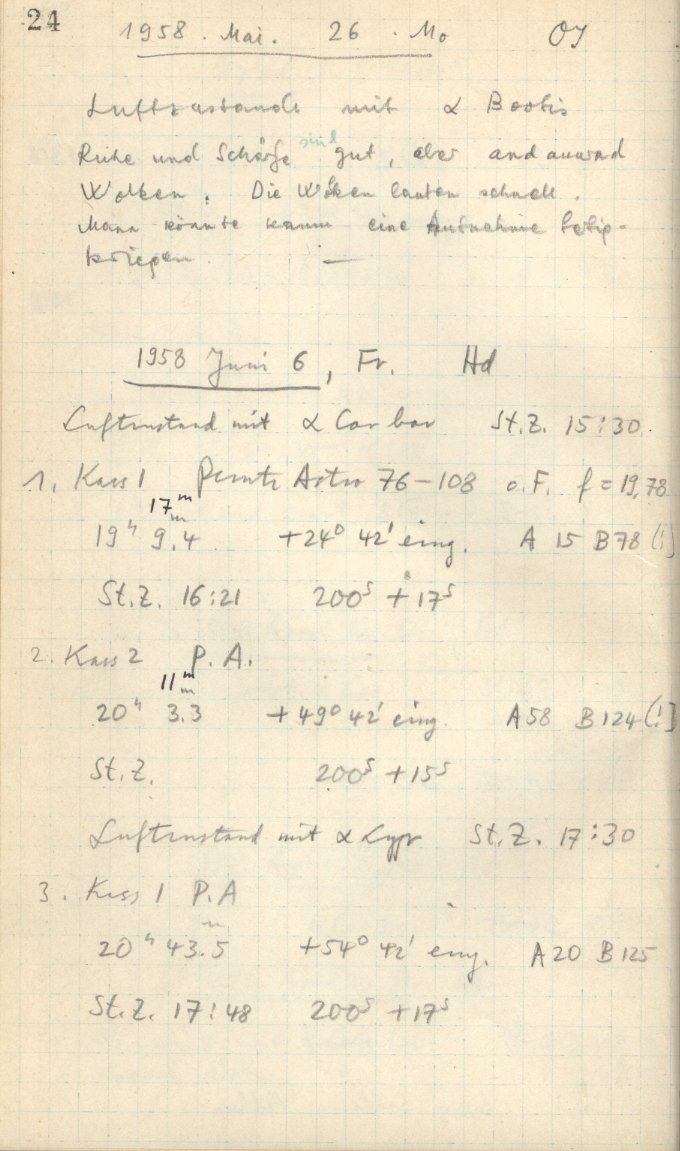 24
1958 . Mai . 26 . Mo OJ
Luftzustande mit α Bootis
Ruhe und Schärfe sind gut, aber andauernd
Wolken. Die Wolken lauten schnell.
Mann könnte kaum eine Aufnahme
kriegen —
1958 Juni 6, Fr. Hd
Luftzustand mit α Cor bor St.Z. 15:30.
1. Kass 1 Perutz Astro 76–108 o.F. f = 19,78
17ᵐ
19ʰ 9.4ᵐ +24° 42' eing. A 15 B78 (!)
St.Z. 16:21 200ˢ + 17ˢ
2. Kass 2 P.A.
11ᵐ
20ʰ 3.3ᵐ +49° 42' eing. A58 B124 (!)
St.Z. 200ˢ + 15ˢ
Luftzustand mit α Lyr St.Z. 17:30
3. Kass 1 P.A
20ʰ 43.5ᵐ +54° 42' eing. A20 B125
St.Z. 17:48 200ˢ + 17ˢ